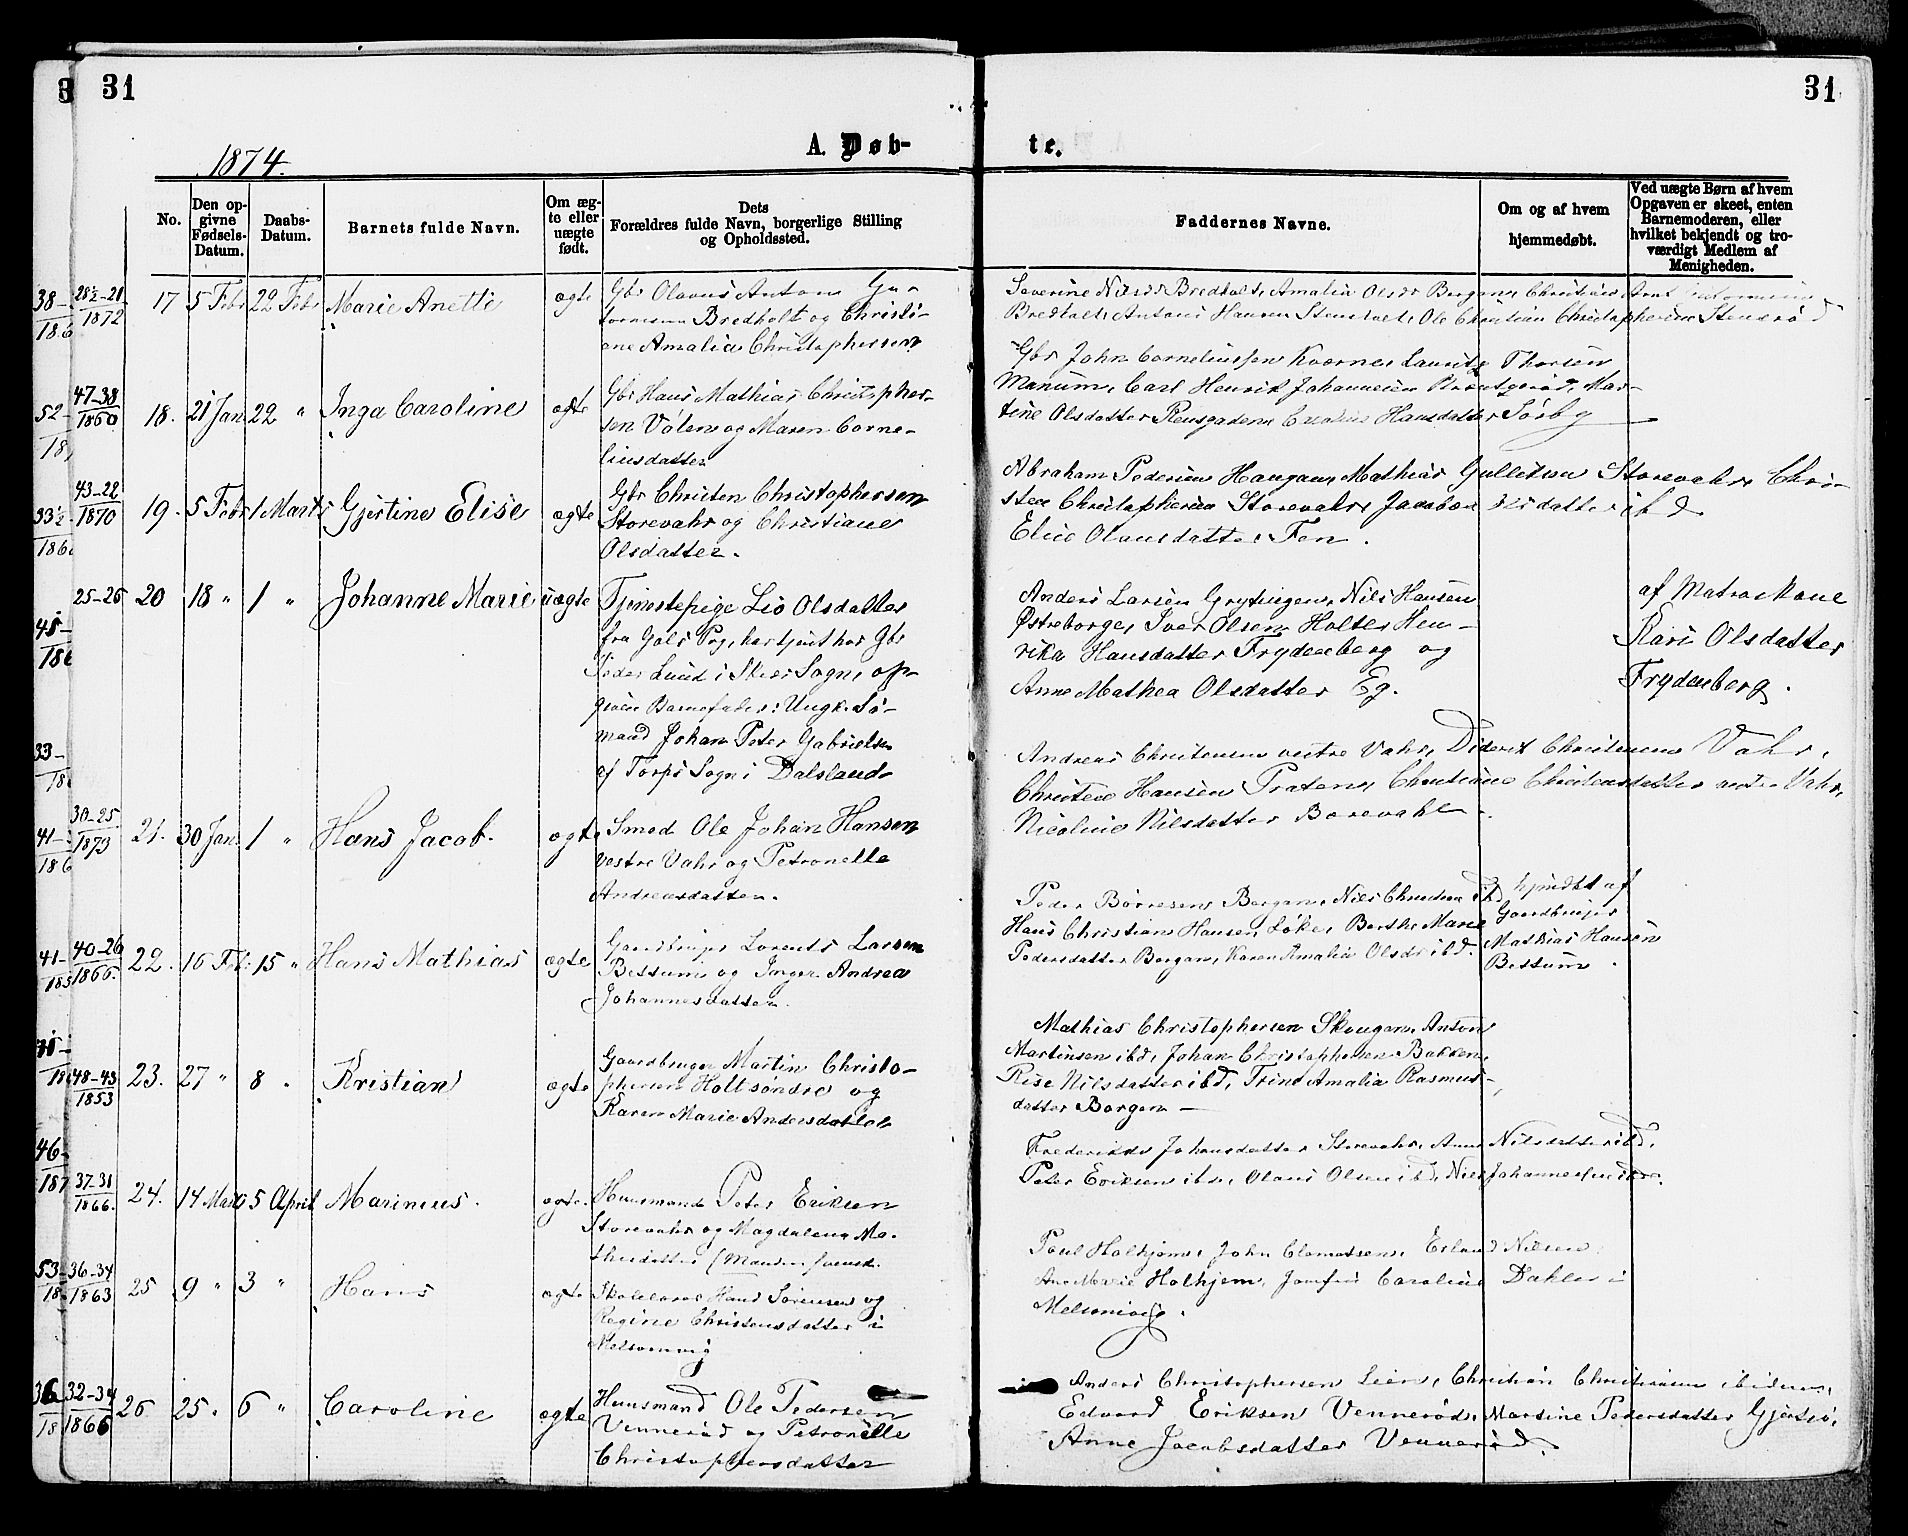 31
31
1874.
A. Døb-
te.
No.
Den op-
givne
Fødsels-
Datum.
Daabs-
Datum.
Barnets fulde Navn.
Om æg-
te eller
uægte
født.
Dets
Forældres fulde Navn, borgerlige Stilling
og Opholdssted.
Faddernes Navne.
Om og af hvem
hjemmedøbt.
Ved uægte Børn af hvem
Opgaven er skeet, enten
Barnemoderen, eller
hvilket bekjendt og tro-
værdigt Medlem af
Menigheden.
28½-21
1872
17 5 Febr 22 Febr Marie Anette ægte
Gbr Olavus Anton Gu-
Bredholt og Christi-
ane Amalia Christophersen
Severine Nilsdr Bredholt, Amalia Olsdr Bergan, Christian
Bredholt, Anton Hansen Stensholt, Ole Christian Christophersen Stensrød
47-38
1860
18. 21 Jan 22 " Inga Caroline ægte
Gbr Hans Mathias Christopher-
sen Vølen og Maren Corne-
liusdatter
Gbr John Corneliussen Kværne, Laurits Thorsen
Manum, Carl Henrik Johannesen Mar-
tine Olsdatter Hansdatter Sørby
43-28
1870
19. 5 Febr 1 Marts Gjertine Elise ægte
Gbr Christen Christophersen
Storevahr og Christiane
Olsdatter.
Abraham Pedersen Haugan, Mathias Gullitsen Storevahr, Chri-
sten Christophersen Storevahr, datter ibd
Elise Olausdatter Fen.
25-26
20 18 " 1 " Johanne Marie uægte
Tjenestepige Liv Olsdatter
fra Gols Prg, har tjent hos Gbr
Peder Lund i Skier Sogn, op-
given Barnefader: Ungk. Sø-
mand Johan Peter Gabrielsen
af Torps Sogn i Dalsland
Anders Larsen Grytingen, Nils Hansen
Østreborge, Iver Olsen Holte, Hen-
rika Hansdatter Frydenberg og
Anne Mathea Olsdatter Eg.
af Matroskone
Kari Olsdatter
Frydenberg.
30-25
1873
21. 30 Jan. 1 " Hans Jacob. ægte
Smed Ole Johan Hansen
vestre Vahr og Petronelle
Andreasdatter.
Andreas Christensen vestre Vahr, Diderik Christensen Vahr,
Christen Hansen Praten, Christine Christensdatter vestre Vahr,
Nicoline Nilsdatter Borevahr.
40-26
1866.
22. 16 Feb: 15 " Hans Mathias ægte
Gaardbruger Lorents Larsen
Bessum og Inger Andrea
Johannesdatter.
Peder Børresen Bergan, Nils Christensen ibd
Hans Christian Hansen Løke, Berthe Marie
Pedersdatter Bergan, Karen Amalia Olsdr ibd.
hjmdbt af
Gaardbruger
Mathias Hansen
Bessum.
48-43
1853
23. 27 " 8 " Kristian ægte
Gaardbruger Martin Christo-
phersen Holt søndre og
Karen Marie Andersdatter
Mathias Christophersen Skougen, Anton
Martinsen ibd, Johan Christophersen Bakken,
Rise Nilsdatter ibd, Trine Amalia Rasmus-
datter Borgen
37-31
1866.
24. 14 Marts 5 April Marinius. ægte.
Huusmand Peter Eriksen
Storevahr og Magdalena Ma-
thisdatter (Manden svensk.
Frederikke Johansdatter Storevahr, Anne Nilsdatter ibd,
Peter Eriksen ibd, Olaus Olsen ibd, Niels Johannessen ibd.
36-34
1863
25 9 " 3 " Hans ægte
Skolelærer Hans Sørensen og
Regine Christensdatter i
Melsomvig
Poul Holhjem, John Clemetsen, Erland Nilsen,
Ane Marie Holhjem, Jomfru Caroline Dahler i
Melsomvig.
32-34
1866
26 25 " 6 " Caroline ægte
Huusmand Ole Pedersen
Vennerød og Petronelle
Christophersdatter
Anders Christophersen Lien, Christian Christiansen ibidem,
Edvard Eriksen Vennerød, Martine Pedersdatter Gjertsø,
Anne Jacobsdatter Vennerød.